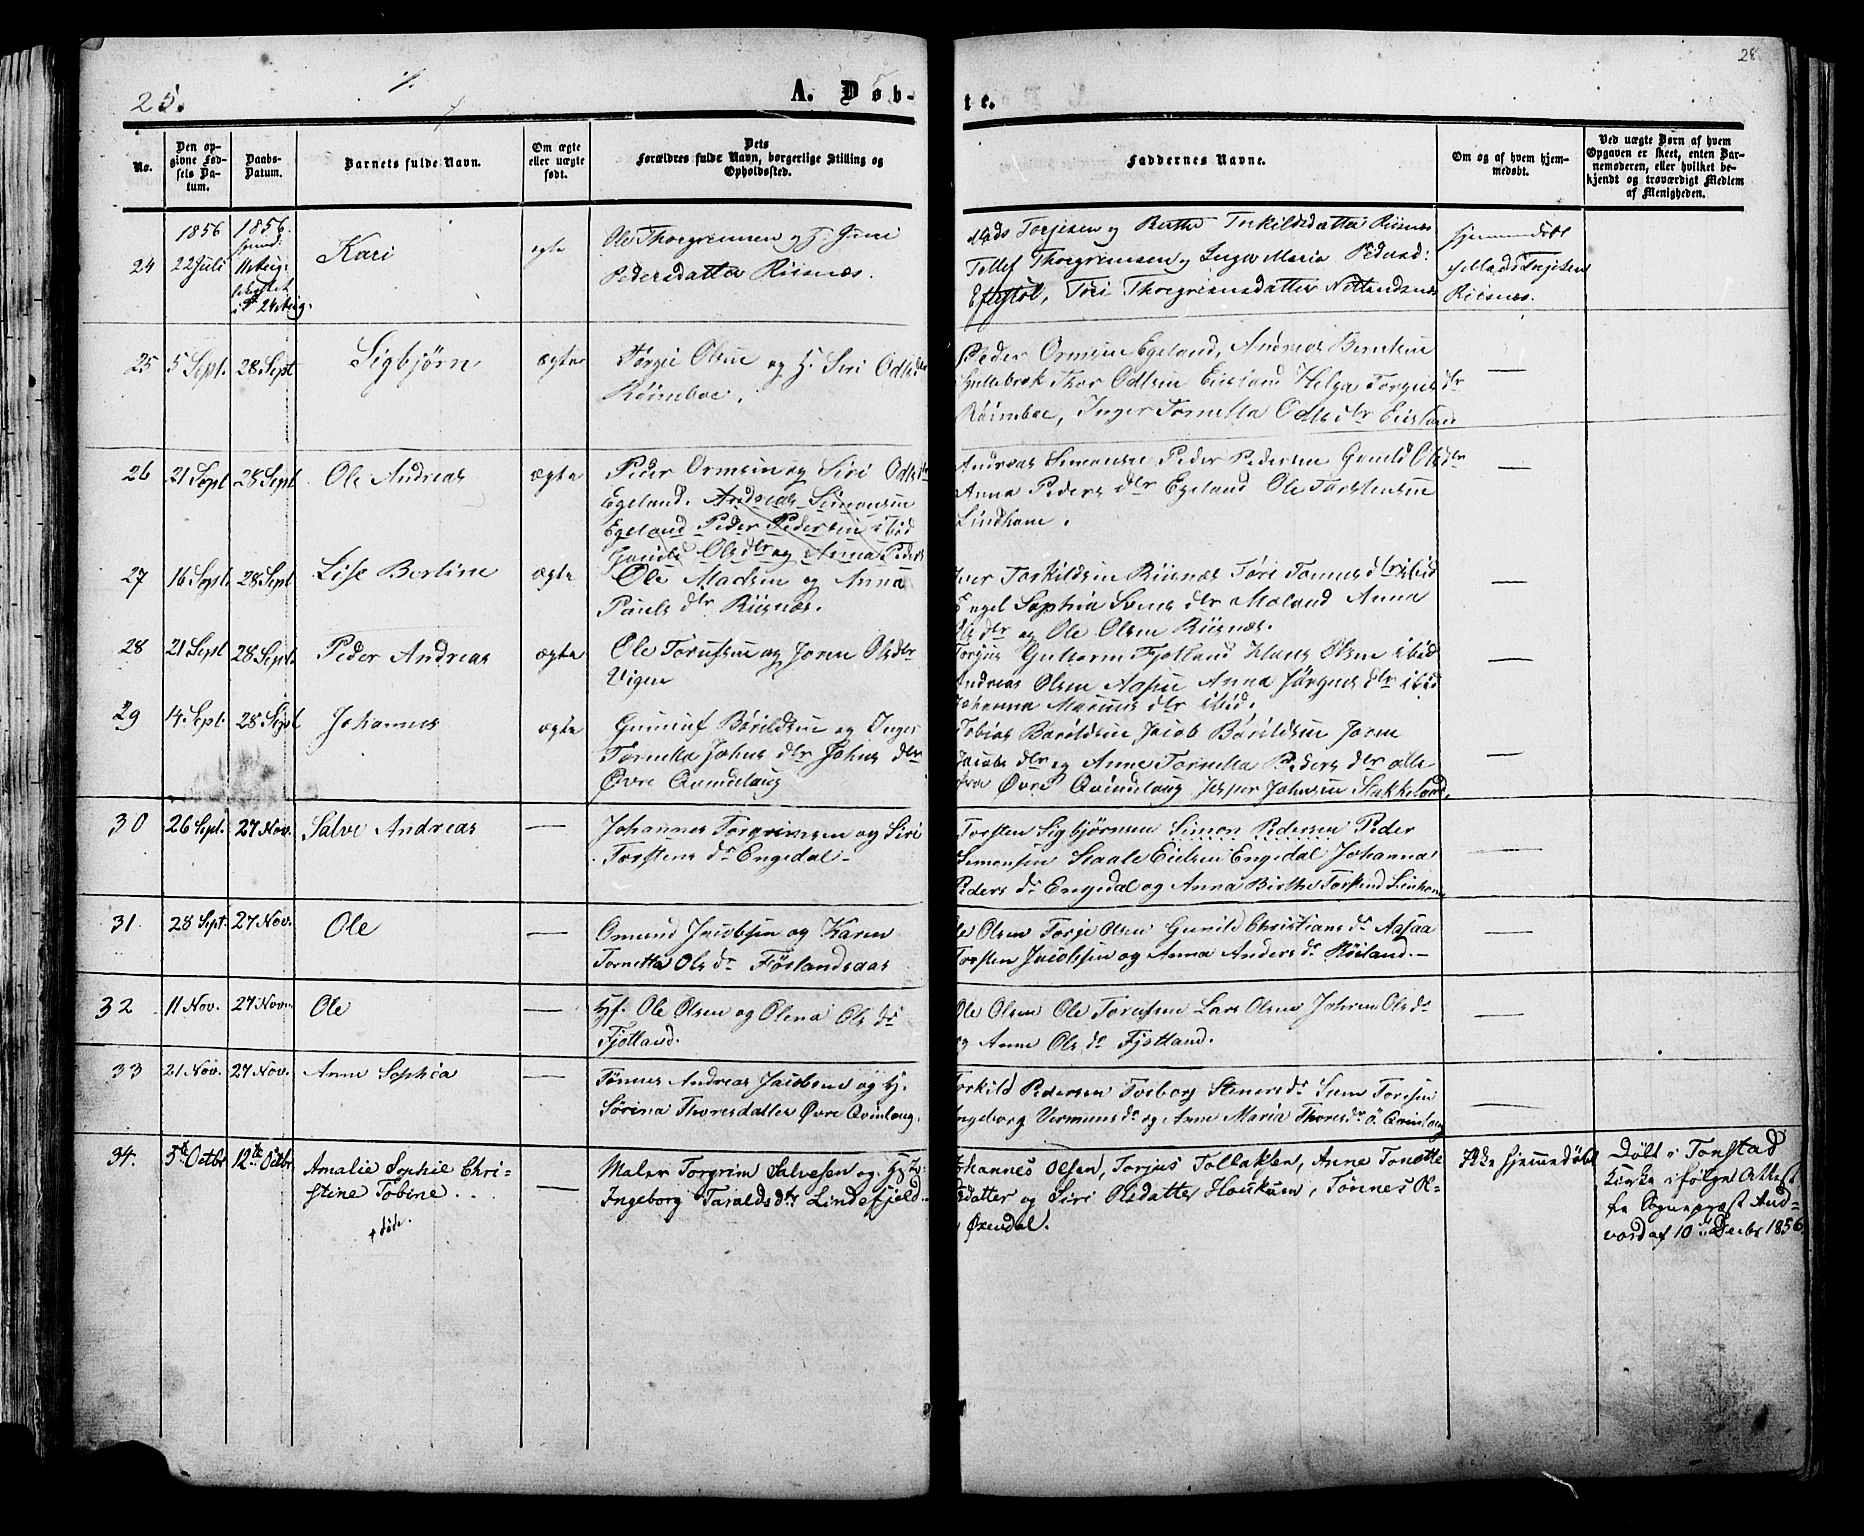 25.
A. Døb-
te.
28
No.
Den op-
givne Fød-
sels Da-
tum.
Daabs-
Datum.
Barnets fulde Navn.
Om ægte
eller uægte
født.
Dets
Forældres fulde Navn, borgerlige Stilling og
Opholdssted.
Faddernes Navne.
Om og af hvem hjem-
medøbt.
Ved uægte Børn af hvem
Opgaven er skeet, enten Bar-
nemoderen, eller hvilket be-
kjendt og troværdigt Medlem
af Menigheden.
24
1856
22 Juli
1856.
11 Aug.
24 Aug.
Kari
egte
Ole Thorgrimsen og H. Guri
Pedersdatter Riisnæs.
Mads Torjesen og Berthe Terkildsdatter Riisnæs
Tollef Thorgrimsen og Inger Maria Pedersd:
Eftestøl, Tori Thorgrimsdatter Netlandsnæs
Hjemmedøbt
Mads Torjesen
Riisnæs.
25
5 Sept.
28 Sept
Sigbjørn
ægte
Torgie Olsen og H. Siri Odlsdr
Røimboe.
Peder Ormsen Egeland, Andreas Berntsen
Gullebræk Thor Odlsen Eiesland Helga Torgiesdr
Røimboe, Inger Tornetta Odlsdlr Eiesland
—
26
21 Sept
28 Sept
Ole Andreas
ægte
Peder Ormsen og Siri Odlsdr
Egeland. Andreas Simonsen
Egeland Peder Pedersen ibid
Gunild Olsdlr og Anna Peders
Andreas Simonsen Peder Pedersen Gunild Olsdlr
Anna Pedersdlr Egeland Ole Torstensen
Lindhom.
—
27
16 Sept.
28 Sept
Lise Bertine
ægte
Ole Madsen og Anna
Paulsdlr Riisnæs.
Iver Torkildsen Riisnæs Tori Tomasdlr ibid
Engel Sophia Svensdlr Moland Anna
Olsdlr og Ole Olsen Riisnæs.
—
28
21 Sept
28 Sept.
Peder Andreas
ægte
Ole Torufsen og Joren Olsdlr
Vigen
Torjus Guttorm Fjotland Klaus Olsen ibid
Andreas Olsen Aasen Anna Jørgensdlr ibid
Johanna Mariusdlr ibid.
—
29
14. Sept.
28 Sept
Johannes
ægte
Gunuuf Bårildsen og Inger
Tornetta Johnsdlr Johnsdlr
Øvre Qvindelaug
Tobias Bårildsen Jacob Bårildsen Joren
Jacobsdlr og Anne Tornetta Pedersdlr alle
fra Øvre Qvindelaug Jesper Johnsen Stakkeland,
—
30
26 Sept.
27 Nov.
Salve Andreas
—
Johannes Torgrimsen og Siri
Torstensdr Engedal-
Torsten Sigbjørnsen Simon Pedersen Peder
Simonsen Staale Eielsen Engedal Johanna
Pedersdr Engedal og Anna Birthe Torstensd Linhom
—
31
28 Sept.
27 Nov.
Ole
—
Omund Jacobsen og Karen
Tornetta Olsdr Føslandsaas
Ole Olsen Torje Olsen Gunild Christiansdr Aasaa
Torsten Jacobsen og Anna Andersdr Røiland.-
—
32
11 Nov.
27 Nov.
Ole
—
Hf. Ole Olsen og Olena Olsdr
Fjotland.
Ole Olsen Ole Torufsen Lars Olsen Johren Olsdr
og Anne Olsdr Fjotland.
—
33
21 Nov.
27 Nov.
Anne Sophia
—
Tønnes Andreas Jacobsen og H.
Sørina Thoresdatter Øvre Qvinlaug.
Torkild Pedersen Torborg Stenersdr Sven Toresen
Ingeborg Vermunsdr og Anne Maria Thoresdr Ø. Qvinlaug
—
34.
5te Octbr
12te Octbr
Amalie Sophie Chri-
stine Tobine..
† døde.
—
Maler Torgrim Salvesen og H.
Ingeborg Taraldsdtr Lindefjeld.
Johannes Olsen, Torjus Tollaksen, Anne Tonette
Pedatter og Siri Pedatter Houkom, Tønnes O-
Øxendal.
Ikke hjemmedøbt
Døbt i Tonstad
Kirke ifølge Attest
fra Sognepræst And-
vord af 10de Decbr 1856